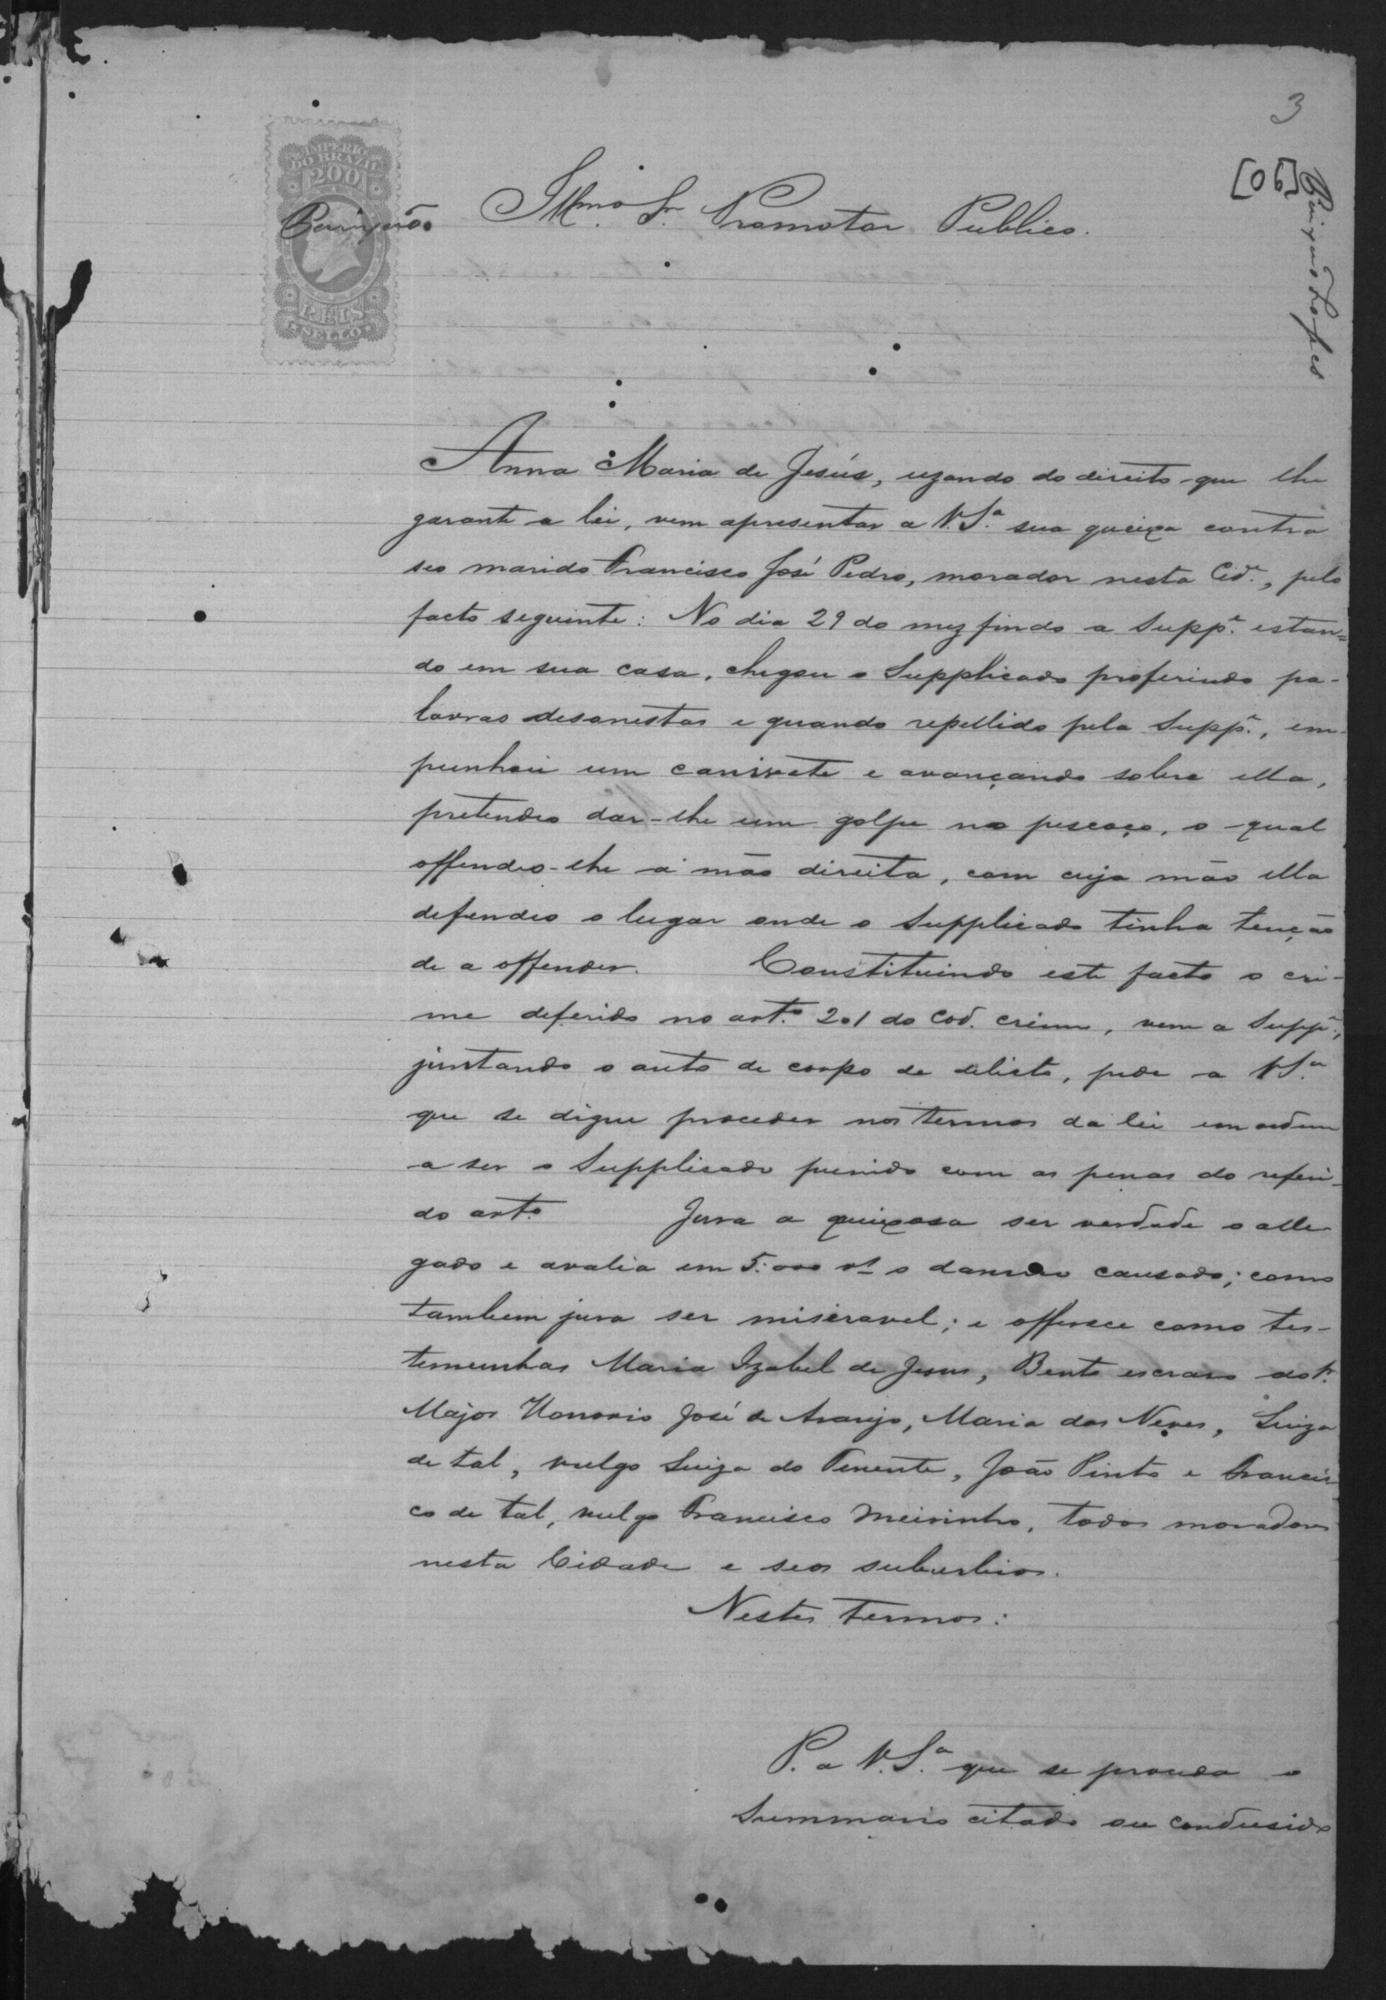 3
[06]
IMPERIO
DO BRAZIL
200
REIS
SELLO
Illmo. Sr. Promotor Publico.
Anna Maria de Jesús, uzando do direito que lhe
garante a lei, vem apresentar a V.Sª. sua queixa contra
seo marido Francisco José Pedro, morador nesta Cidᵉ., pelo
facto seguinte: No dia 29 do mez findo a Suppᵉ. estan=
do em sua casa, chegou o Supplicado proferindo pa-
lavras desonestas e quando repellido pela Suppᵉ., em-
punhou um canivete e avançando sobre ella,
pretendeo dar-lhe um golpe no pescoço, o qual
offendeo-lhe a mão direita, com cuja mão ella
defendeo o lugar onde o Supplicado tinha tenção
de a offender. Constituindo este facto o cri-
me deferido no artº. 201 do Cod. crime, vem a Suppᵉ.,
juntando o auto de corpo de delicto, pede a VSª.
que se digne proceder nos termos da lei em ordem
a ser o Supplicado punido com as penas do referi-
do artº. Jura a queixosa ser verdade o alle-
gado e avalia em 5:000 rˢ o damno causado; como
tambem jura ser miseravel; e offerece como tes-
temunhas Maria Izabel de Jesus, Bento escravo do
Major Honorio José de Araujo, Maria das Neves, Luiza
de tal, vulgo Luiza do Tenente, João Pinto e Francis
co de tal, vulgo Francisco Meirinho, todos moradores
nesta Cidade e seos suburbios.
Nestes termos:
P. a V.Sª. que se proceda o
Summario citado ou condusido